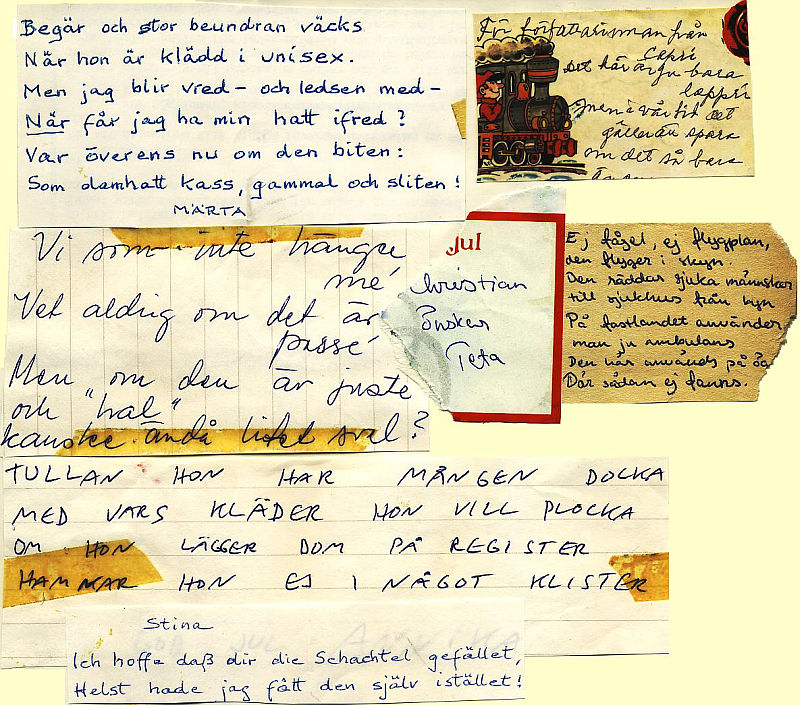 Begär och stor beundran väcks
När hon är klädd i unisex.
Men jag blir vred – och ledsen med –
När får jag ha min hatt ifred?
Var överens nu om den biten:
Som damhatt kass, gammal och sliten!
MÄRTA
För författarinnan från
Capri
Det här är ju bara
lappri
men i vår tid det
gäller att spara
om det så bara
Vi som inte hänger
me'
Vet aldrig om det är
passé
Men om den är juste
och "hal"
kanske ändå litet sval?
Jul
Christian
önsker
Teta
Ej fågel, ej flygplan,
den flyger i skyn.
Den räddar sjuka människor
till sjukhus från byn
På fastlandet använder
man ju ambulans
Den här används på öar
Där sådan ej fanns.
TULLAN HON HAR MÅNGEN DOCKA
MED VARS KLÄDER HON VILL PLOCKA
OM HON LÄGGER DOM PÅ REGISTER
HAMNAR HON EJ I NÅGOT KLISTER
Stina
Ich hoffe daß dir die Schachtel gefället,
Helst hade jag fått den själv istället!